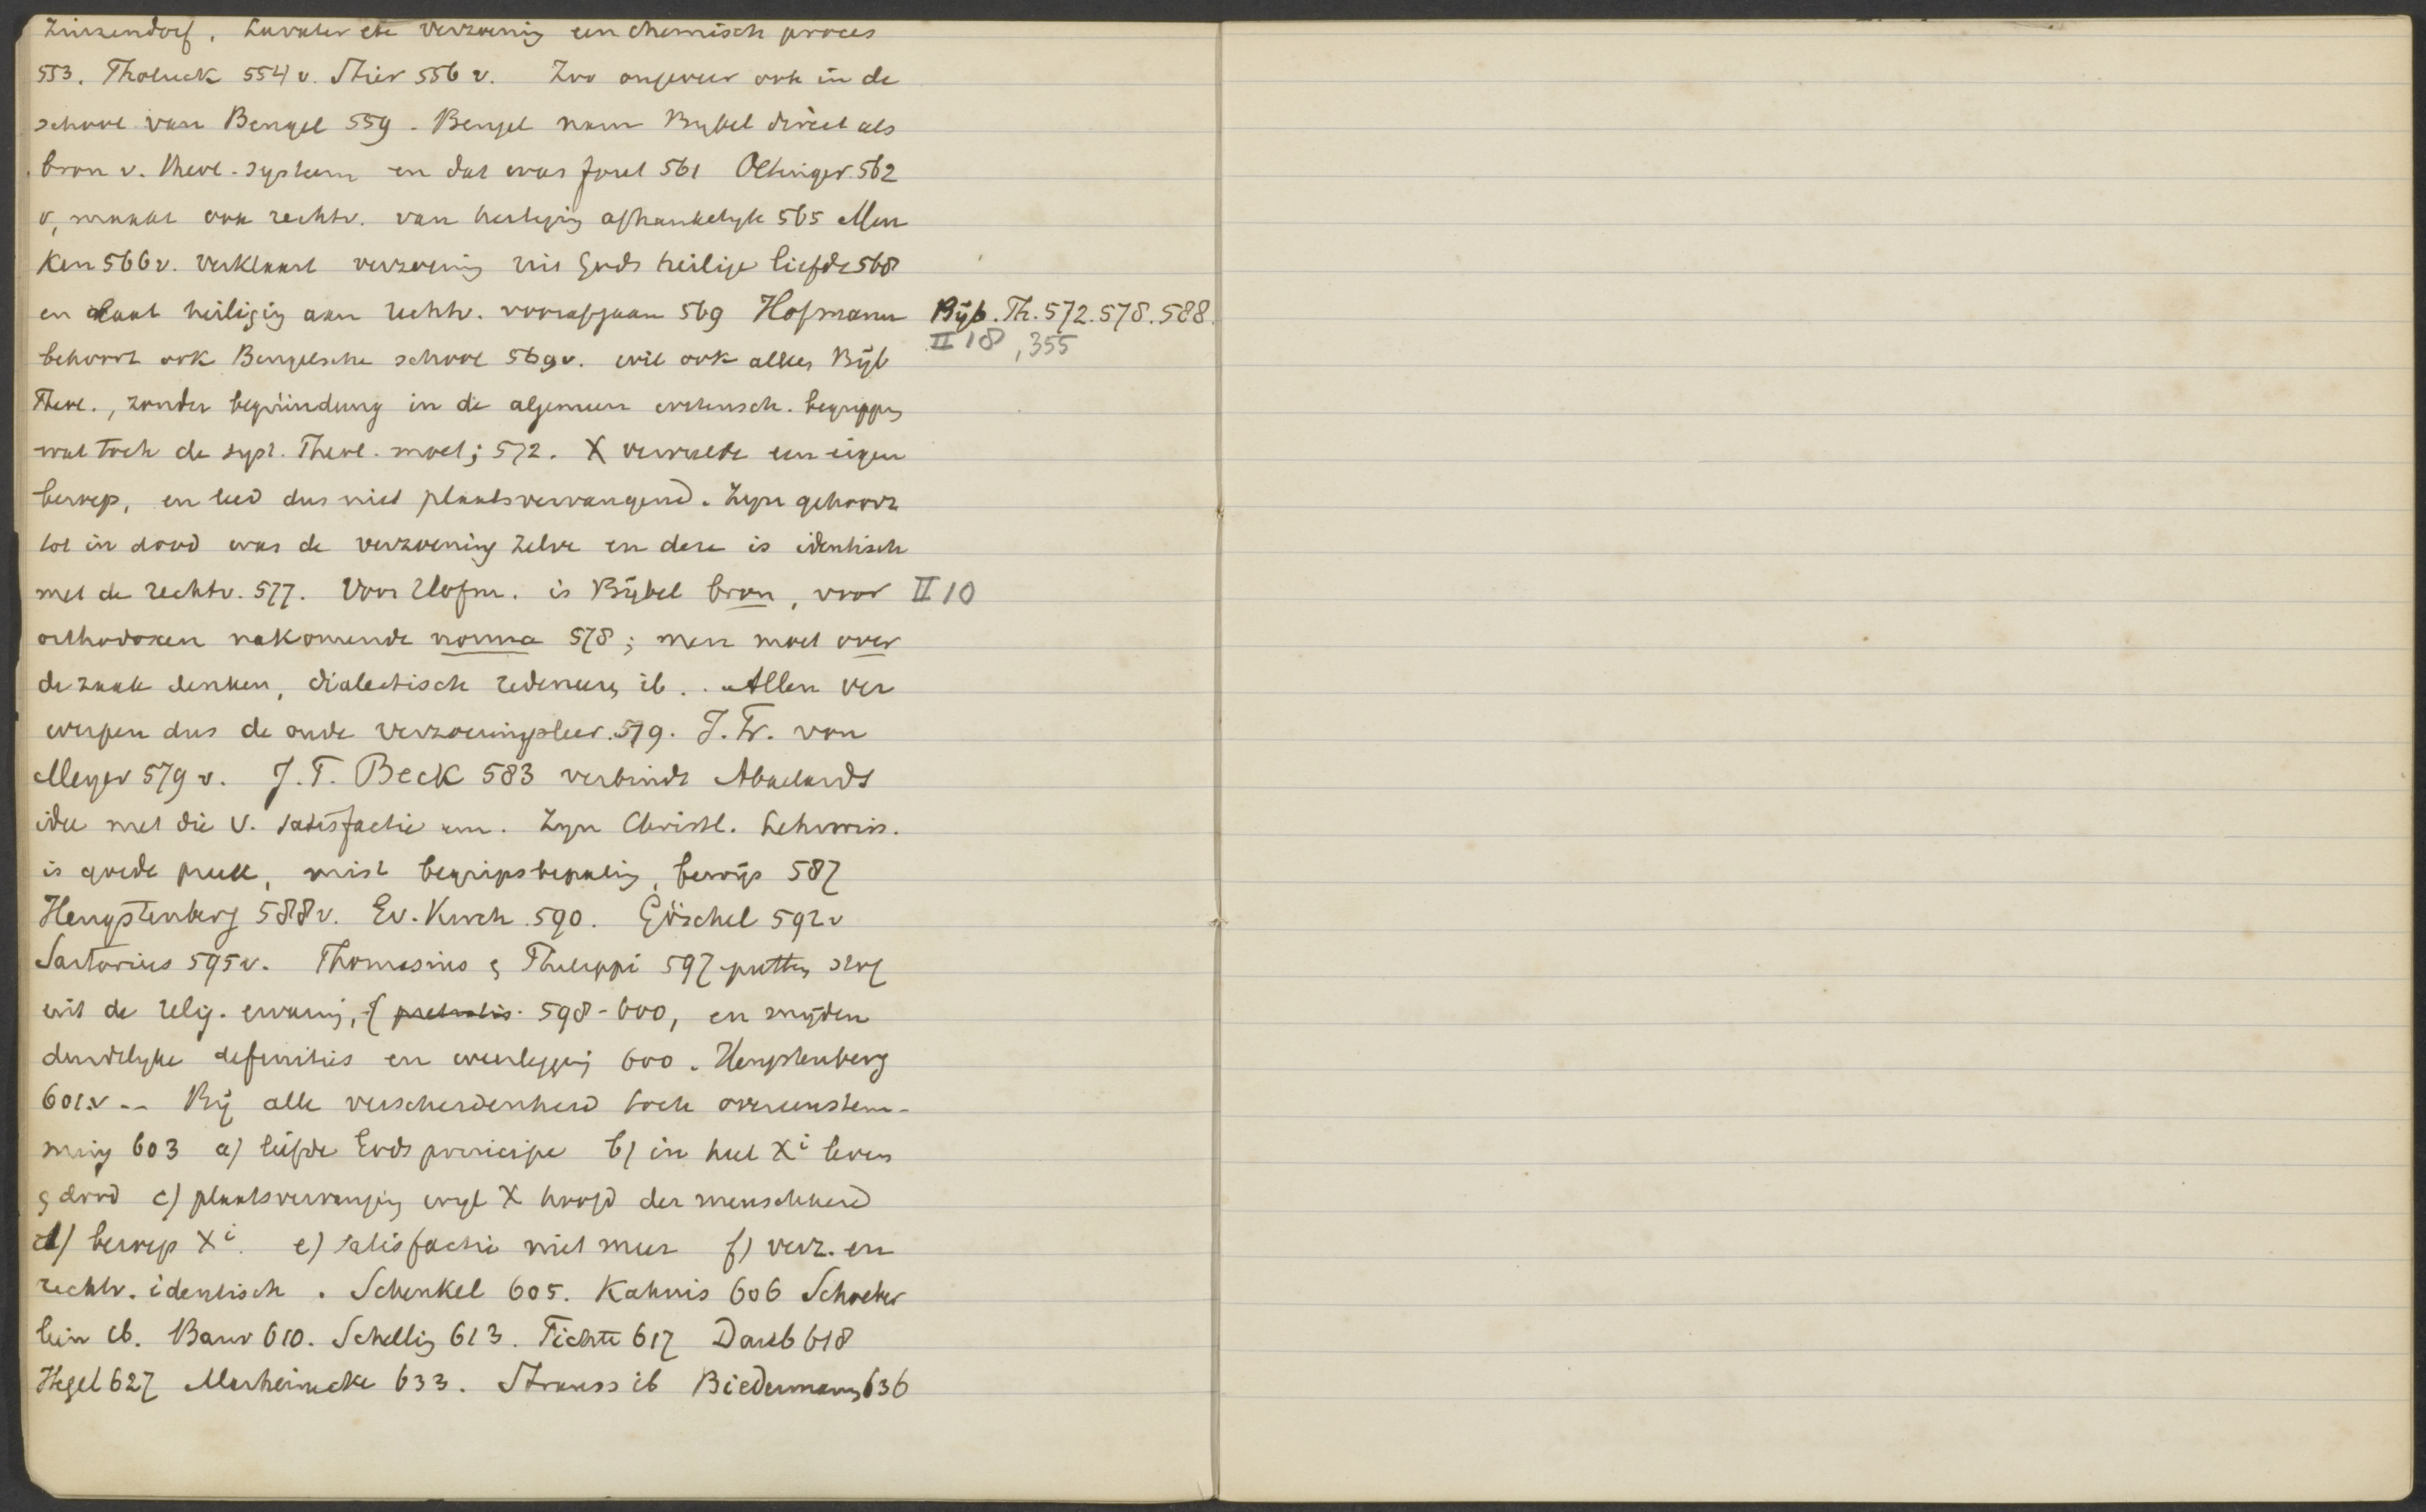 Zinzendorf. Lavater etc verzoening een chemisch proces
553. Tholuck 554 v. Stier 556 v. Zoo ongeveer ook in de
school van Bengel 559. Bengel nam Bybel direct als
bron v. theol. system en dat was fout 561 Oetinger 562
v, maakt ook rechtv. van heiliging afhankelyk 565 Men
ken 566 v. verklaart verzoening uit Gods heilige liefde 568
en laat heiliging aan rechtv. voorafgaan 569 Hofmann
Bijb. Th. 572. 578. 588.
II 18, 355
behoort ook Bengelsche school 569 v. wil ook alles Bijb
Theol., zonder begründung in de algemeen wetensch. begrippen
wat toch de syst. Theol. moet; 572. X vervulde een eigen
beroep, en leed dus niet plaatsvervangend. Zyn gehoorz
tot in dood was de verzoening zelve en deze is identisch
met de rechtv. 577. Voor Hofm. is Bijbel bron, voor
II 10
orthodoxen nakomende norma 578; men moet over
de zaak denken, dialectisch redeneeren ib. Allen ver
werpen dus de oude verzoeningsleer. 579. J. Fr. von
Meyer 579 v. J. T. Beck 583 verbindt Abaelards
idee met die v. satisfactie am. Zyn Christl. Lehrwiss.
is goede preek, mist begripsbepaling, bewijs 587
Hengstenberg 588 v. Ev. Kirch. 590. Göschel 592 v
Sartorius 595 v. Thomasius & Philippi 597 putten stof
uit de relig. ervaring, 598-600, en mijden
duidelyke definities en weerlegging 600. Hengstenberg
601. v -- Bij alle verscheidenheid toch overeenstem-
ming 603 a) liefde Gods principe b) in heel Xi leven
& dood c) plaatsvervanging wyl X hoofd der menschheid
d) beroep Xi. e) satisfactie niet meer f) verz. en
rechtv. identisch. Schenkel 605. Kahnis 606 Schoeber
lein ib. Baur 610. Schelling 613. Fichte 617 Daub 618
Hegel 627 Marheinecke 633. Strauss ib Biedermann 636